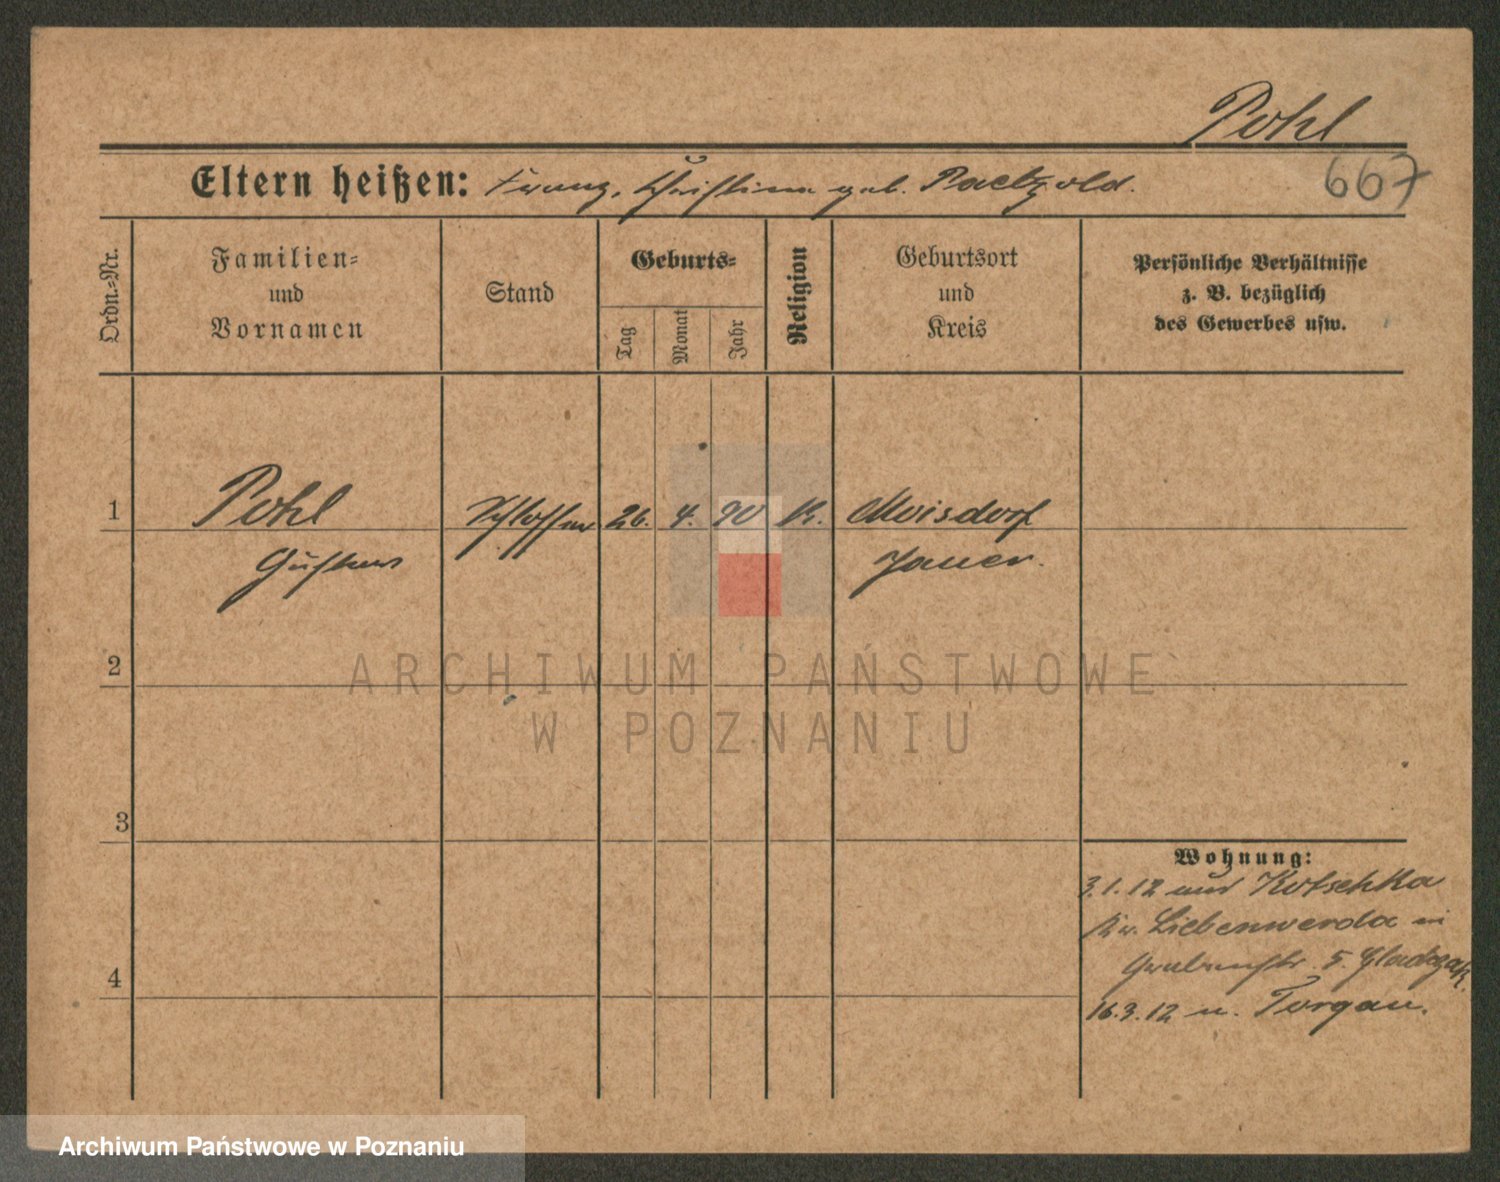 Pohl
667
Eltern heißen: Franz, Christina geb. Paetzold.
Ordn.-Nr.
Familien-
und
Vornamen
Stand
Geburts-
Tag
Monat
Jahr
Religion
Geburtsort
und
Kreis
Persönliche Verhältnisse
z. B. bezüglich
des Gewerbes usw.
1
Pohl
Gustav
Schlosser
26.
4.
90
K.
Moisdorf
Jauer.
2
3
4
Wohnung:
3.1.12 aus Kotschka
Kr. Liebenwerda in
5.
16.3.12 n. Torgau.
ARCHIWUM PAŃSTWOWE
W POZNANIU
Archiwum Państwowe w Poznaniu